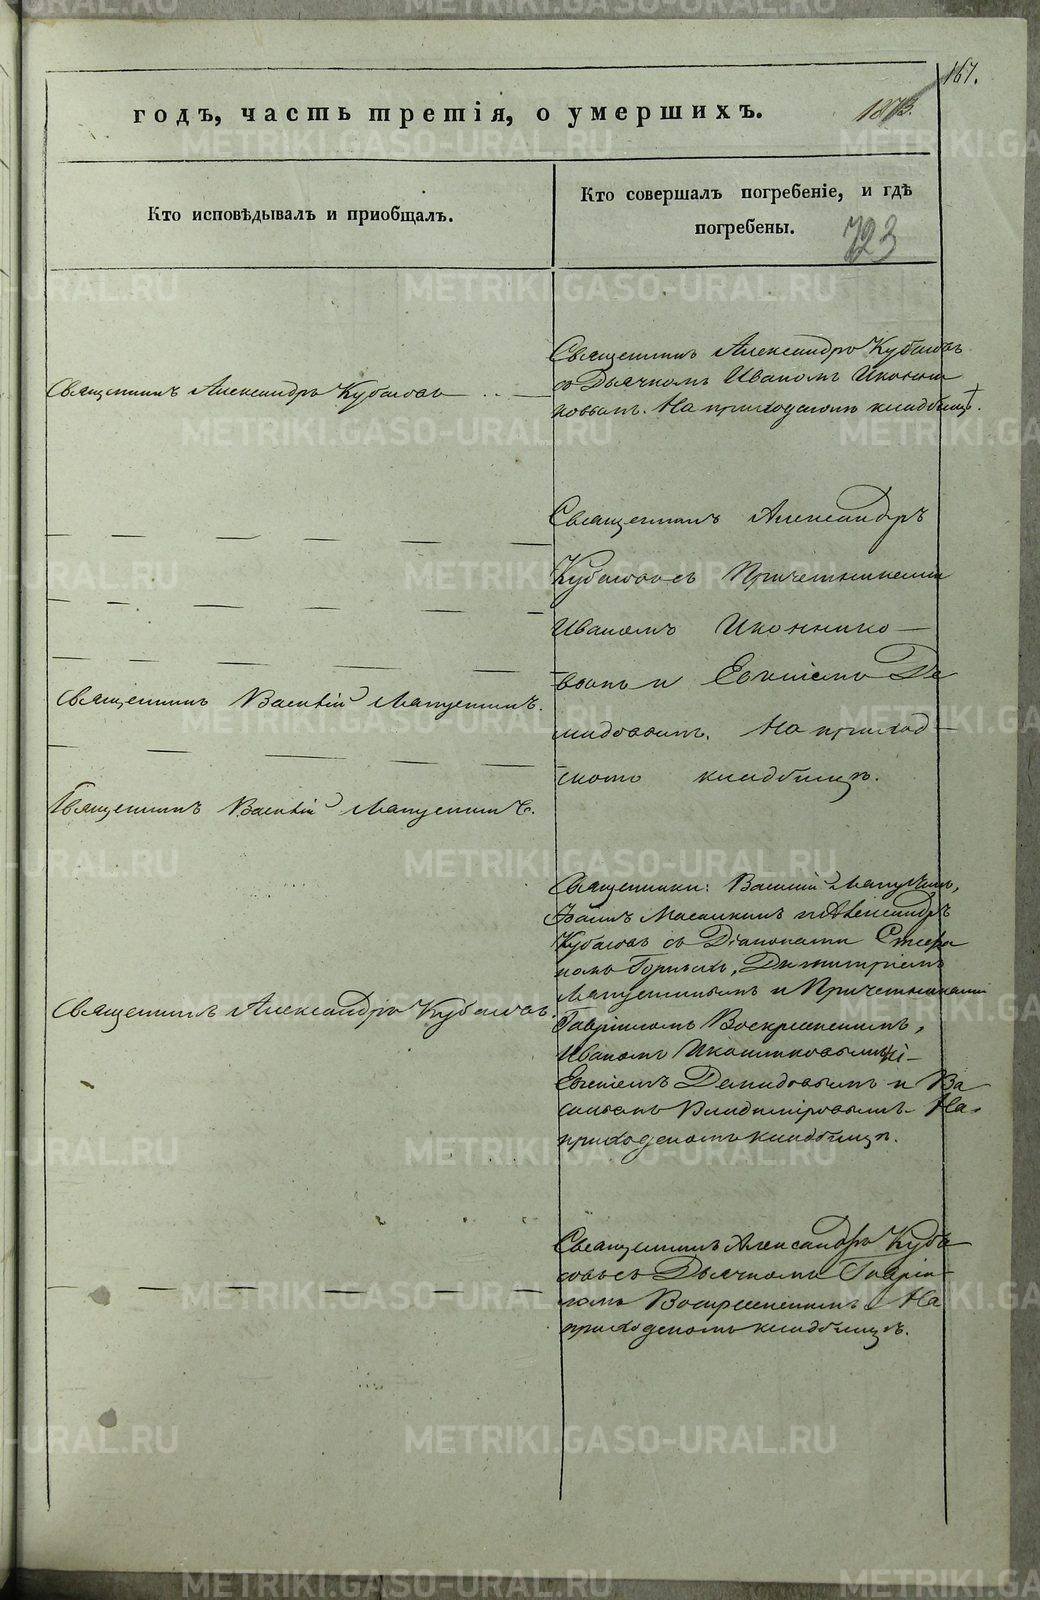 167.
годъ, часть третія, о умершихъ.
1873.
Кто исповѣдывалъ и приобщалъ.
Кто совершалъ погребеніе, и гдѣ
погребены.
723
Священникъ Александръ Кубасовъ
Священникъ Александръ Кубасовъ
съ Дьячкомъ Иваномъ Иконни
ковымъ. На приходскомъ кладбищѣ.
Священникъ Александръ
Кубасовъ съ Причетниками
Иваномъ Иконнико-
вымъ и Евгеніемъ Де
мидовымъ. На приход-
скомъ кладбищѣ.
Священникъ Василій Мапустинъ.
Священникъ Василій Мапустинъ.
Священники: Василій
Іоаннъ и Александръ
Кубасовъ съ Діаконами Стефа
номъ Димитріемъ
и Причетниками
Гавріиломъ Воскресенскимъ,
Иваномъ Иконниковымъ
Евгеніемъ Демидовымъ и Ва
Владиміровымъ. На
приходскомъ кладбищѣ.
Священникъ Александръ Кубасовъ.
Священникъ Александръ Куба
совъ съ Дьячкомъ Гавріи-
ломъ Воскресенскимъ. На
приходскомъ кладбищѣ.
METRIKI.GASO-URAL.RU